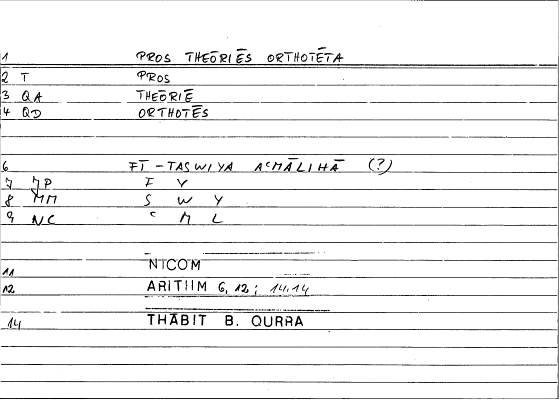 1 PROS THEŌRIĒS ORTHOTĒTA
2 T PROS
3 QA THEŌRIĒ
4 QD ORTHOTĒS
6 FĪ-TASWIYA AʿMĀLIHĀ (?)
7 JP F Y
8 MM S W Y
9 NC ʿ M L
11 NICOM
12 ARITHM 6,12; 14.14
14 THĀBIT B. QURRA